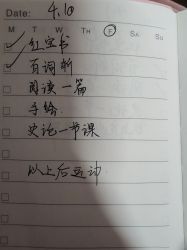 Date: 4.10
M T W TH F SA SU
红宝书
百词斩
阅读一篇
手绘
史论一节课
以上后运动